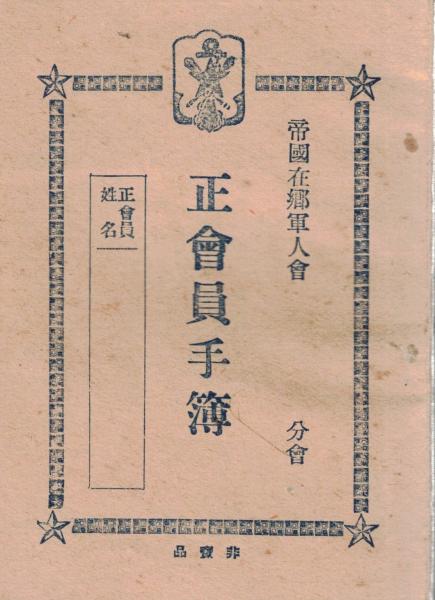 帝國在鄉軍人會　分會
正會員手簿
正會員
姓名
非賣品